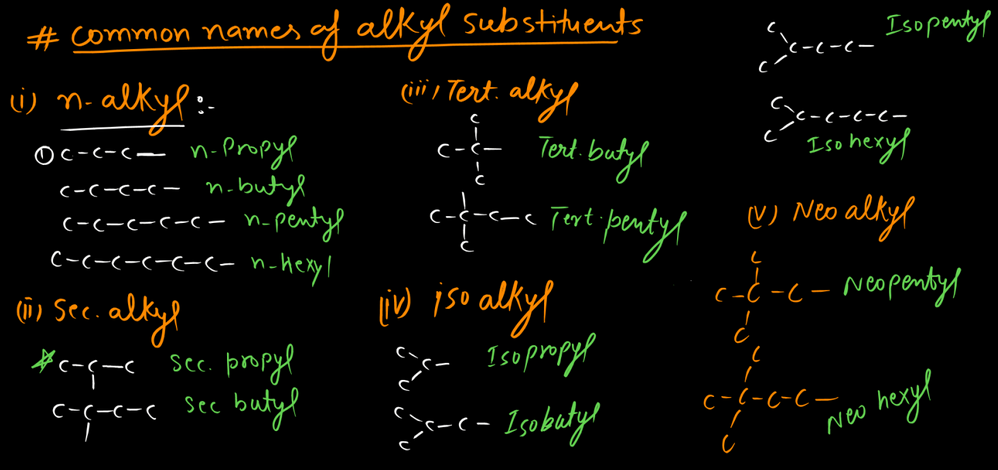 # common names of alkyl substituents
(i) n-alkyl :-
① C-C-C- n-propyl
C-C-C-C- n-butyl
C-C-C-C-C- n-pentyl
C-C-C-C-C-C- n-hexyl
(ii) Sec. alkyl
C-C-C sec. propyl
C-C-C-C sec butyl
(iii) Tert. alkyl
C
C-C-
C
Tert. butyl
C-C-C-C
C
Tert. pentyl
(iv) iso alkyl
C
C-
C
Isopropyl
C
C-C-
C
Isobutyl
C
C-C-C-
C
Isopentyl
C
C-C-C-C-
C
Iso hexyl
(v) Neo alkyl
C
C-C-C- Neopentyl
C
C
C-C-C-C-
C
Neo hexyl